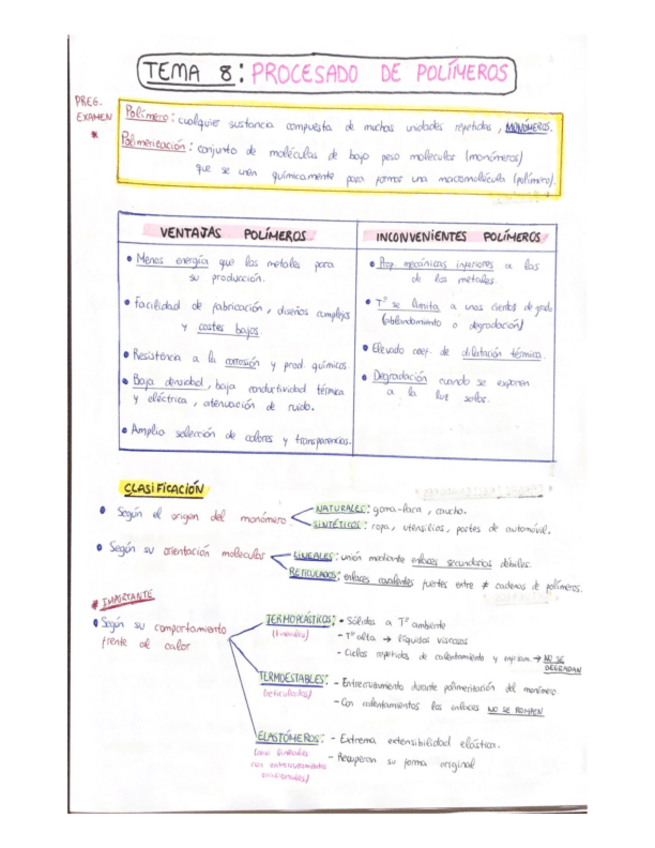 TEMA 8: PROCESADO DE POLÍMEROS
PREG.
EXAMEN
*
Polímero: cualquier sustancia compuesta de muchas unidades repetidas, MONÓMEROS.
Polimerización: conjunto de moléculas de bajo peso molecular (monómeros)
que se unen químicamente para formar una macromolécula (polímero).
VENTAJAS POLÍMEROS
• Menos energía que los metales para
su producción.
• Facilidad de fabricación, diseños complejos
y costes bajos.
• Resistencia a la corrosión y prod. químicos.
• Baja densidad, baja conductividad térmica
y eléctrica, atenuación de ruido.
• Amplia selección de colores y transparencias.
INCONVENIENTES POLÍMEROS
• Prop. mecánicas inferiores a las
de los metales.
• Tª se limita a unos cientos de grado
(ablandamiento o degradación)
• Elevado coef. de dilatación térmica.
• Degradación cuando se exponen
a la luz solar.
CLASIFICACIÓN
• Según el origen del monómero
NATURALES: goma-laca, caucho.
SINTÉTICOS: ropa, utensilios, partes de automóvil.
• Según su orientación molecular
LINEALES: unión mediante enlaces secundarios débiles.
RETICULADOS: enlaces covalentes fuertes entre ≠ cadenas de polímeros.
* IMPORTANTE
• Según su comportamiento
frente al calor
TERMOPLÁSTICOS: • Sólidos a Tª ambiente
(lineales) - Tª alta → líquidos viscosos
- Ciclos repetidos de calentamiento y → NO SE
DEGRADAN
TERMOESTABLES: - Entrecruzamiento durante polimerización del monómero.
(reticulados) - Con calentamientos los enlaces NO SE ROMPEN
ELASTÓMEROS: - Extrema extensibilidad elástica.
(casi lineales - Recuperan su forma original
con entrecruzamientos
ocasionales)